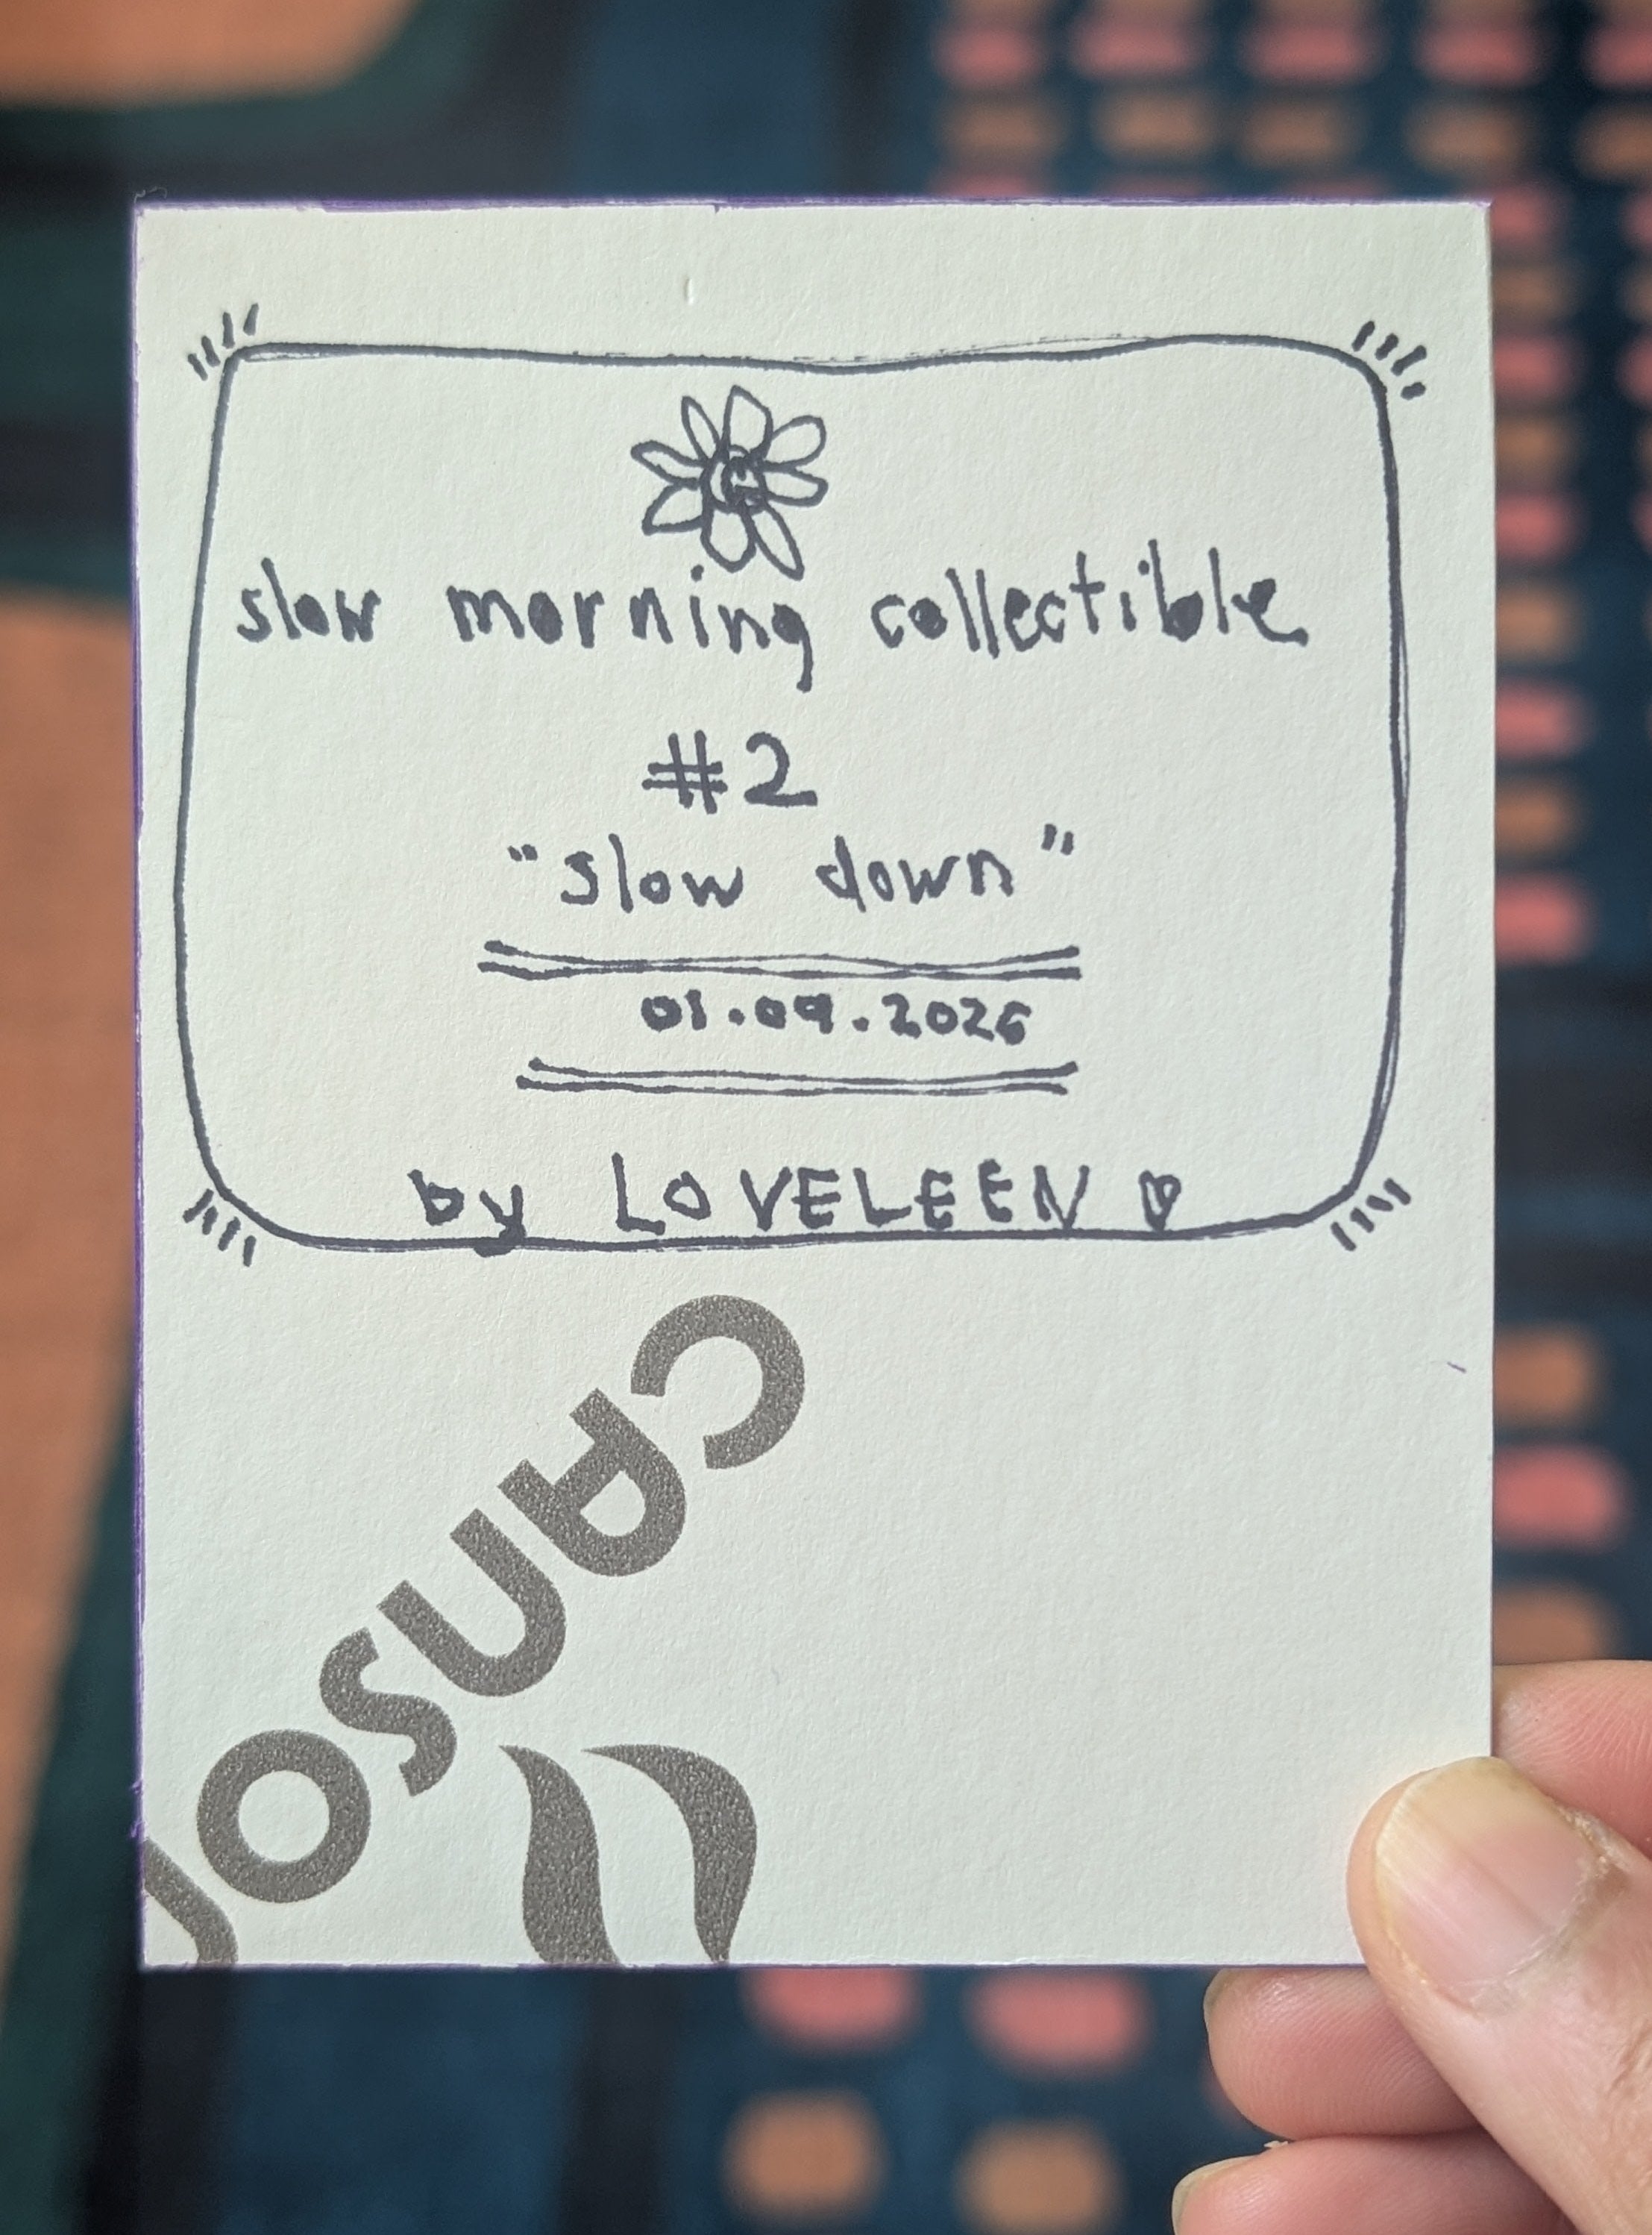 slow morning collectible
#2
"slow down"
01.09.2026
by LOVELEEN ♡
CANSO